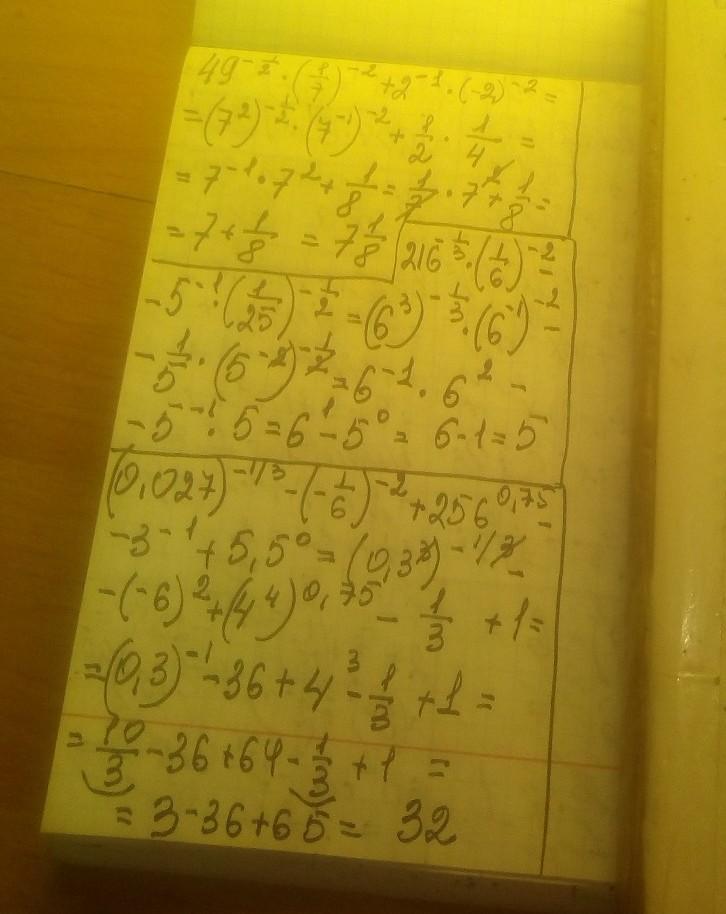 49^{-1/2} · (1/7)^{-2} + 2^{-1} · (-2)^{-2} =
= (7^2)^{-1/2} · (7^{-1})^{-2} + 1/2 · 1/4 =
= 7^{-1} · 7^2 + 1/8 = 1/7 · 7^2 + 1/8 =
= 7 + 1/8 = 7 1/8
216^{-1/3} · (1/6)^{-2} -
- 5^{-1} · (1/25)^{-1/2} = (6^3)^{-1/3} · (6^{-1})^{-2} -
- 1/5 · (5^{-2})^{-1/2} = 6^{-1} · 6^2 -
- 5^{-1} · 5 = 6^1 - 5^0 = 6 - 1 = 5
(0,027)^{-1/3} - (-1/6)^{-2} + 256^{0,75} -
- 3^{-1} + 5,5^0 = (0,3^3)^{-1/3} -
- (-6)^2 + (4^4)^{0,75} - 1/3 + 1 =
= (0,3)^{-1} - 36 + 4^3 - 1/3 + 1 =
= 10/3 - 36 + 64 - 1/3 + 1 =
= 3 - 36 + 65 = 32